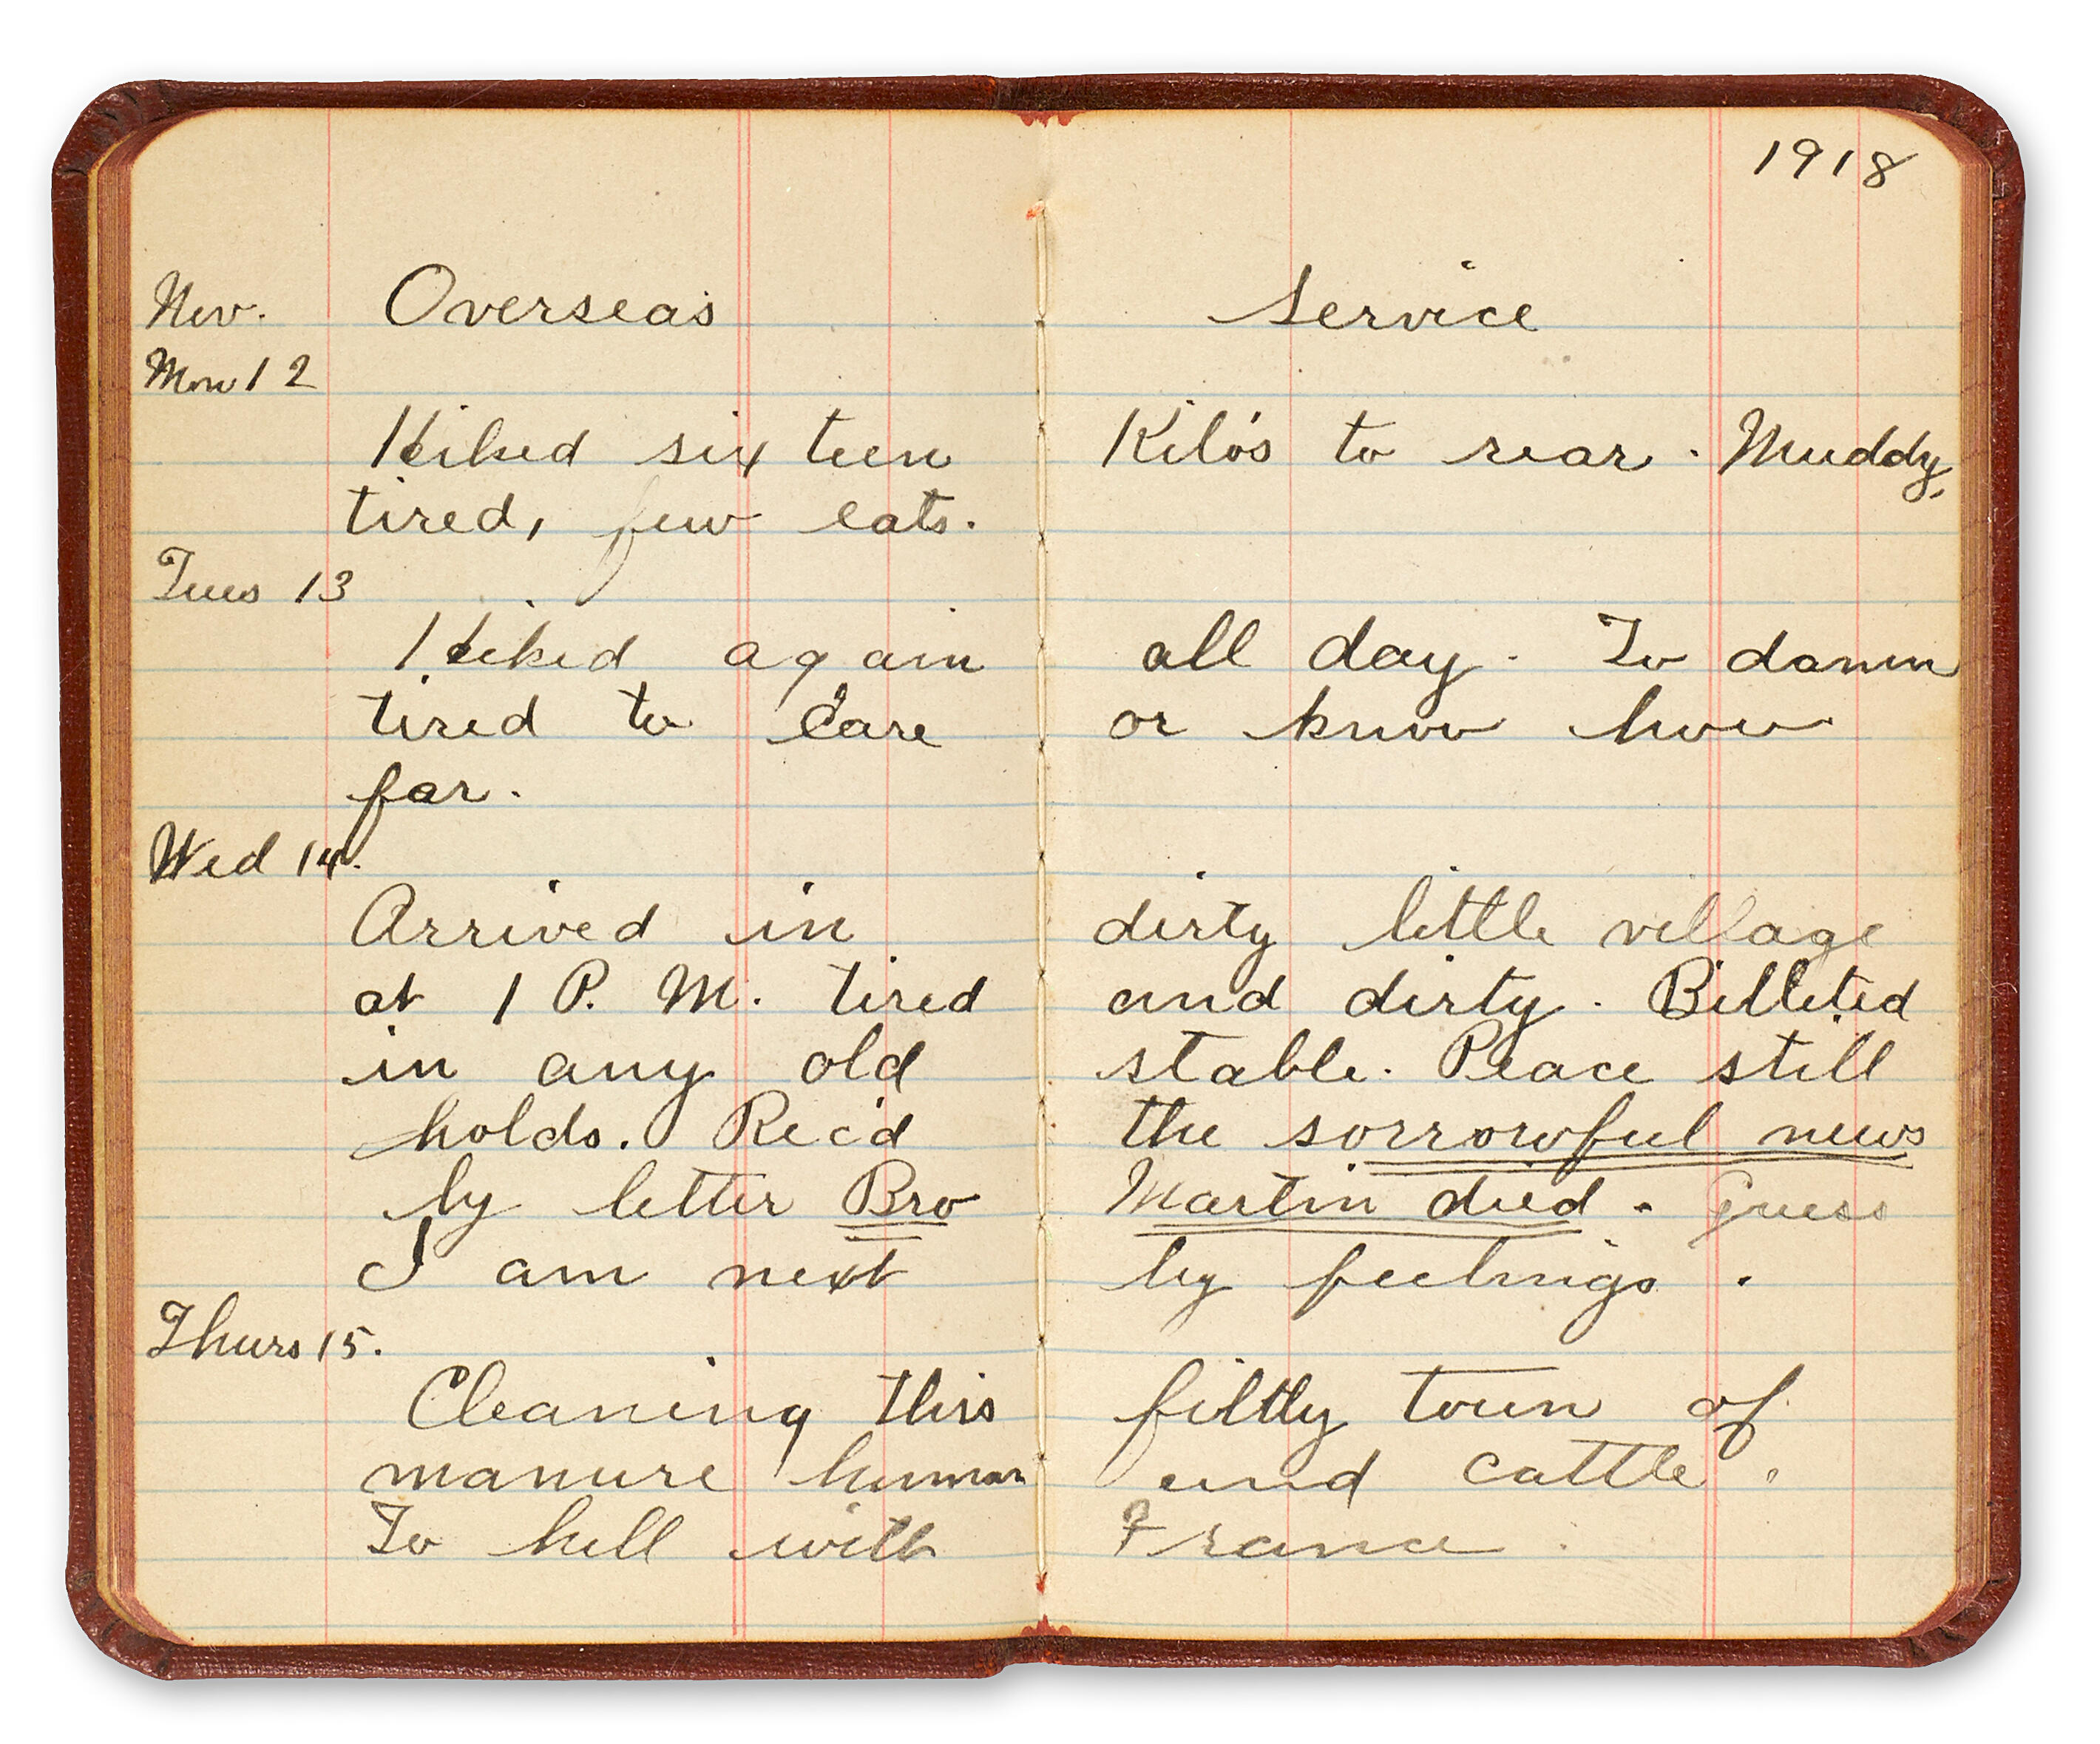 1918
Nov. Overseas Service
Mon 12
Hiked sixteen Kilo's to rear. Muddy,
tired, few eats.
Tues 13
Hiked again all day. To damn
tired to care or know how
far.
Wed 14.
Arrived in dirty little village
at 1 P. M. tired and dirty. Billeted
in any old stable. Peace still
holds. Rec'd the sorrowful news
by letter Bro Martin died. Guess
I am next by feelings.
Thurs 15.
Cleaning this filthy town of
manure human and cattle.
To hell with France.